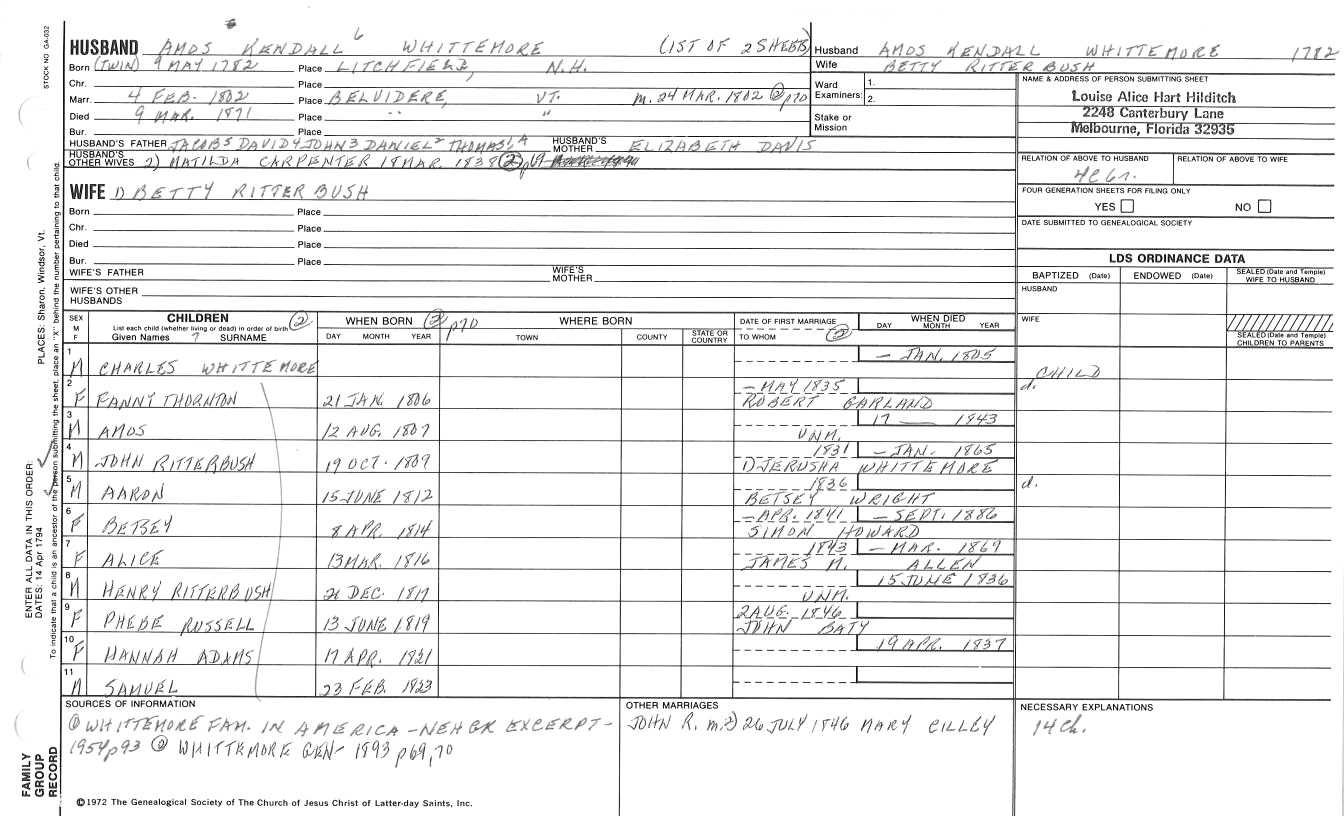 STOCK NO GA-032
HUSBAND AMOS KENDALL 6 WHITTEMORE (1ST OF 2 SHEETS)
Born (TWIN) 9 MAY 1782 Place LITCHFIELD, N.H.
Chr. Place
Marr. 4 FEB. 1802 Place BELVIDERE, VT. m. 24 MAR. 1802 ② p70
Died 9 MAR. 1871 Place " "
Bur. Place
HUSBAND'S FATHER JACOB5 DAVID4 JOHN3 DANIEL2 THOMAS1 A HUSBAND'S MOTHER ELIZABETH DAVIS
HUSBAND'S OTHER WIVES 2) MATILDA CARPENTER 18 MAR. 1838 ② p69
WIFE 1) BETTY RITTER BUSH
Born Place
Chr. Place
Died Place
Bur. Place
WIFE'S FATHER WIFE'S MOTHER
WIFE'S OTHER HUSBANDS
Husband AMOS KENDALL WHITTEMORE 1782
Wife BETTY RITTER BUSH
Ward Examiners: 1.
2.
Stake or Mission
NAME & ADDRESS OF PERSON SUBMITTING SHEET
Louise Alice Hart Hilditch
2248 Canterbury Lane
Melbourne, Florida 32935
RELATION OF ABOVE TO HUSBAND RELATION OF ABOVE TO WIFE
4C6r.
FOUR GENERATION SHEETS FOR FILING ONLY
YES NO
DATE SUBMITTED TO GENEALOGICAL SOCIETY
LDS ORDINANCE DATA
BAPTIZED (Date) ENDOWED (Date) SEALED (Date and Temple) WIFE TO HUSBAND
HUSBAND
WIFE
SEALED (Date and Temple) CHILDREN TO PARENTS
SEX M F
CHILDREN ②
List each child (whether living or dead) in order of birth
Given Names ? SURNAME
WHEN BORN ② p70
DAY MONTH YEAR
WHERE BORN
TOWN COUNTY STATE OR COUNTRY
DATE OF FIRST MARRIAGE
TO WHOM ②
WHEN DIED
DAY MONTH YEAR
1 M CHARLES WHITTEMORE – JAN. 1805 CHILD
2 F FANNY THORNTON 21 JAN. 1806 – MAY 1835 ROBERT GARLAND d.
3 M AMOS 12 AUG. 1807 UNM. 17 1843
4 M JOHN RITTERBUSH 19 OCT. 1809 1831 – JAN. 1865 1) JERUSHA WHITTEMORE
5 M AARON 15 JUNE 1812 1836 BETSEY WRIGHT d.
6 F BETSEY 8 APR. 1814 – APR. 1841 – SEPT. 1886 SIMON HOWARD
7 F ALICE 13 MAR. 1816 1843 – MAR. 1869 JAMES M. ALLEN
8 M HENRY RITTERBUSH DEC. 1817 UNM. 15 JUNE 1836
9 F PHEBE RUSSELL 13 JUNE 1819 2 AUG. 1846 JOHN BATY
10 F HANNAH ADAMS 17 APR. 1821 19 APR. 1837
11 M SAMUEL 23 FEB. 1823
SOURCES OF INFORMATION
① WHITTEMORE FAM. IN AMERICA - NEHGR EXCERPT-
1954 p93 ② WHITTEMORE GEN- 1893 p69,70
OTHER MARRIAGES
JOHN R. m. 2) 26 JULY 1846 MARY CILLEY
NECESSARY EXPLANATIONS
14 Ch.
©1972 The Genealogical Society of The Church of Jesus Christ of Latter-day Saints, Inc.
FAMILY GROUP RECORD
ENTER ALL DATA IN THIS ORDER:
DATES: 14 Apr 1794
PLACES: Sharon, Windsor, Vt.
To indicate that a child is an ancestor of the person submitting the sheet, place an "X" behind the number pertaining to that child.